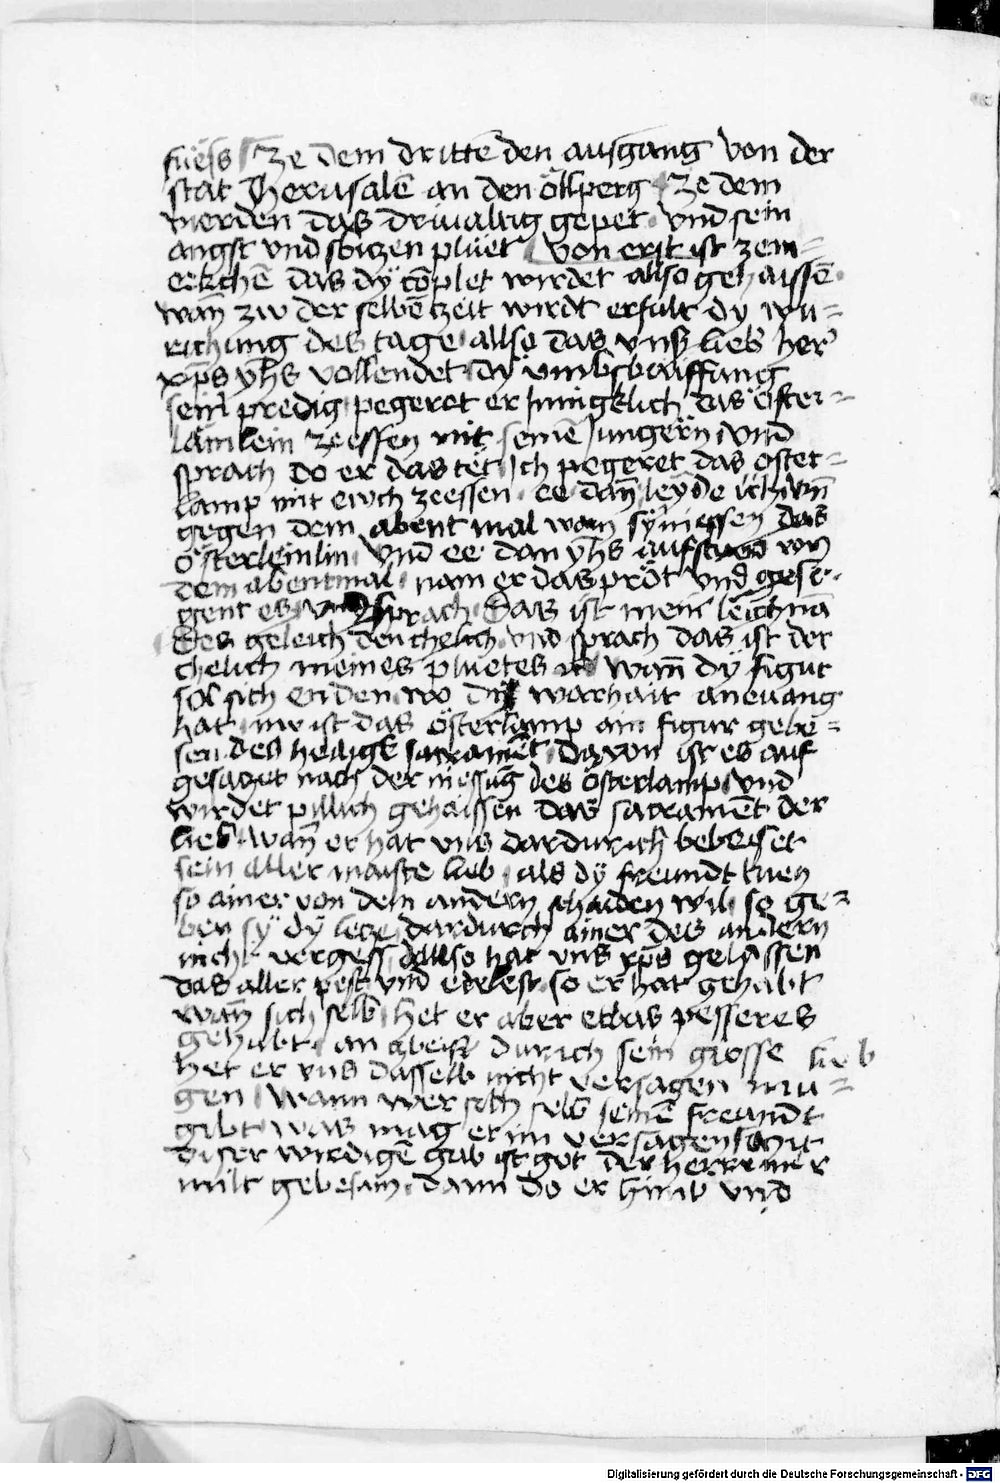 füess Ze dem drittē den ausgang von der
stat Iherusalē an den öllperg Ze dem
vierden das driualtig gepet vnd sein
angst vnd sbiczen plüet Von erst ist zem=
erkchē das dy cōplet wirdet allso gehaissē
wan̄ zw der selbē zeit wirdt erfült dy wu=
richung des tags allso das vnser lieb her
xp̄s yh̄s vollendet dy vmbsbaiffang
sein predig pegeret er Innigklich das öster=
lämlein ze essen mit seinē Jungern vnd
sprach do er das tet Ich pegeret das öster=
lamp mit ewch ze essen ee dan̄ leyde ich
gegen dem abent mal wan sy iessen das
österleinlin Vnd ee dan yh̄s aufstund von
dem abentmal nam er das pröt vnd gese=
gent es vnd sprach Das ist mein leichnā
Des geleich den chelich vnd sprach das ist der
chelich meines pluetes Wan̄ dy figur
sol sich enden wo dy warhait aneuang
hat nw ist das österlamp ain figur gebe=
sen des heiligē sacramēt Dauon ist es auf
gesaczt nach der niessūg des österlamp vnd
wirdet pillich gehaissen das sacramēt der
lieb wan̄ er hat vns dardurch bebeiset
sein aller maiste lieb als dy freundt tuen
so ainer von dem andern schaiden wil so ge=
ben sy dy lecze dardurch ainer des andern
nicht vergess Allso hat vns xp̄s gelassen
das aller pest vnd edelest so er hat gehabt
wan̄ sich selb het er aber etbas pesseres
gehabt an zbeifl durich sein grosse lieb
het er vns dasselb nicht versagen mu=
gen Wann wer sich selb seinē freundt
gibt was mag er im versagen Mit
diser wirdigē gab ist got der herr mer
milt gebesin dann do er himl vnd
Digitalisierung gefördert durch die Deutsche Forschungsgemeinschaft - DFG